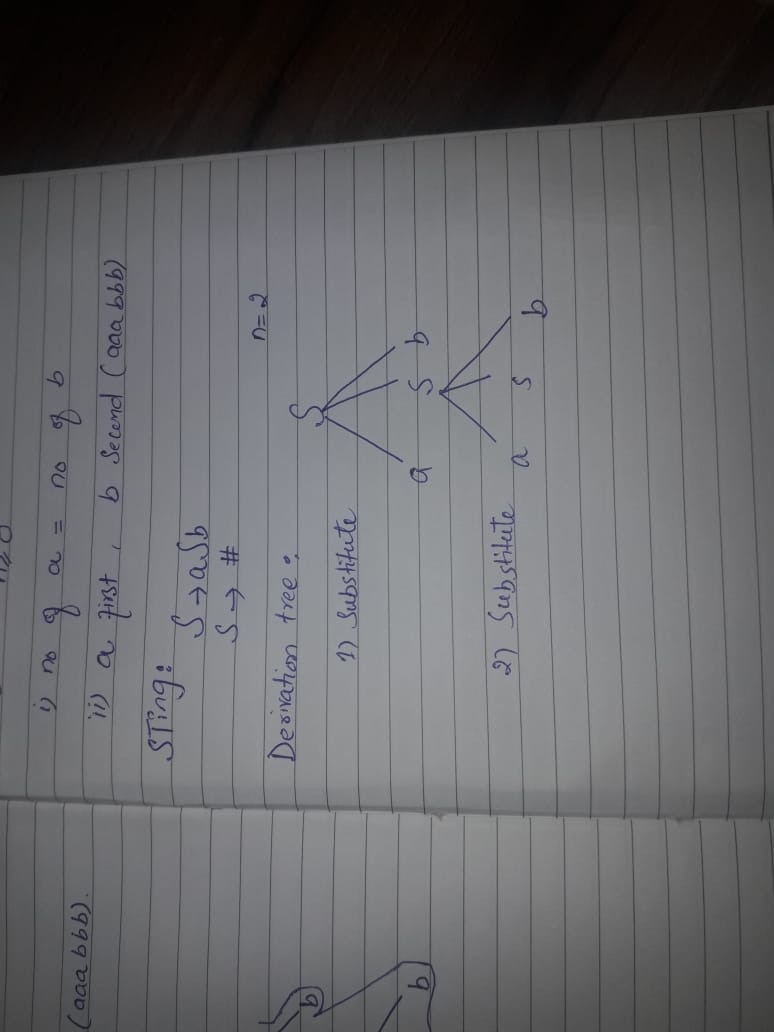 n≥0
i) no of a = no of b
ii) a first, b second (aaa bbb)
STing:
S→aSb
S→ #
Derivation tree: n=2
S
1) Substitute
a S b
2) Substitute
a s b
(aaa bbb).
b
b